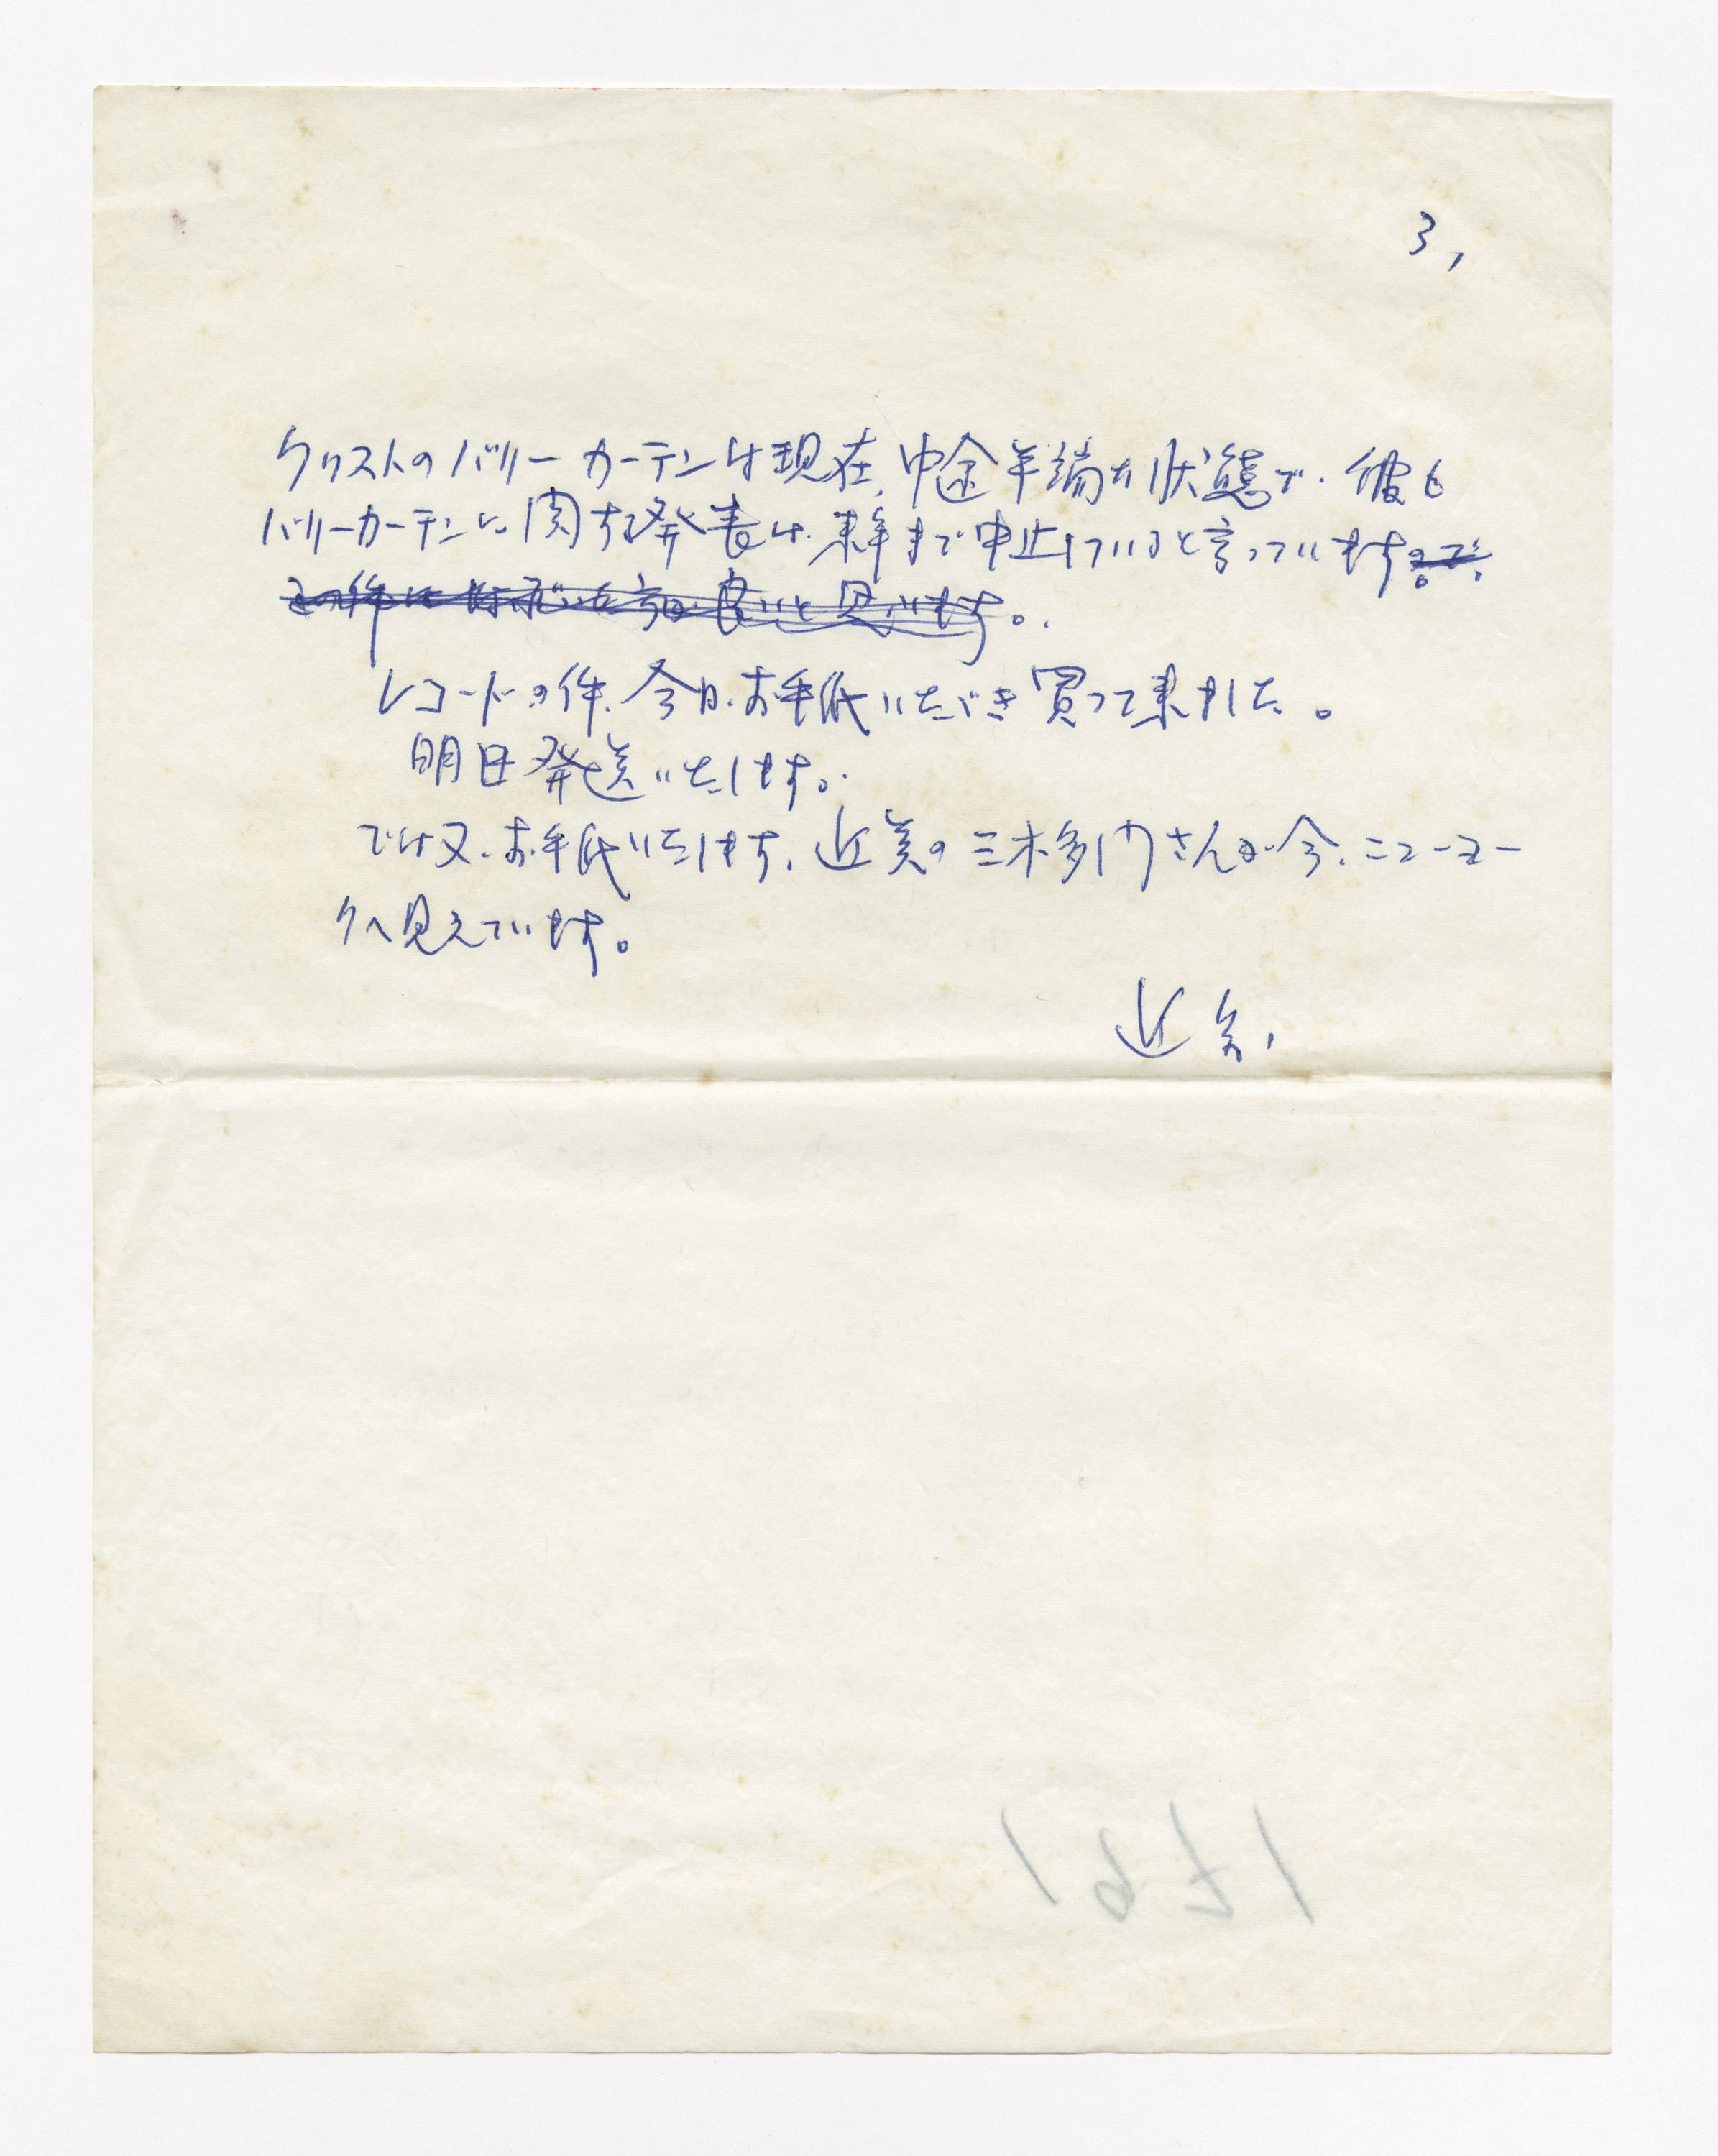 3,
クリストのバリーカーテンは現在、中途半端な状態で、彼も
バリーカーテンに関する発表は、来年まで中止していると言っています。
この件は 方が良いと思います。
レコードの件、今日、お手紙いただき買って来ました。
明日発送いたします。
では又、お手紙いたします、近美の三木多門さんが今、ニューヨー
クへ見えています。
近美、
1971